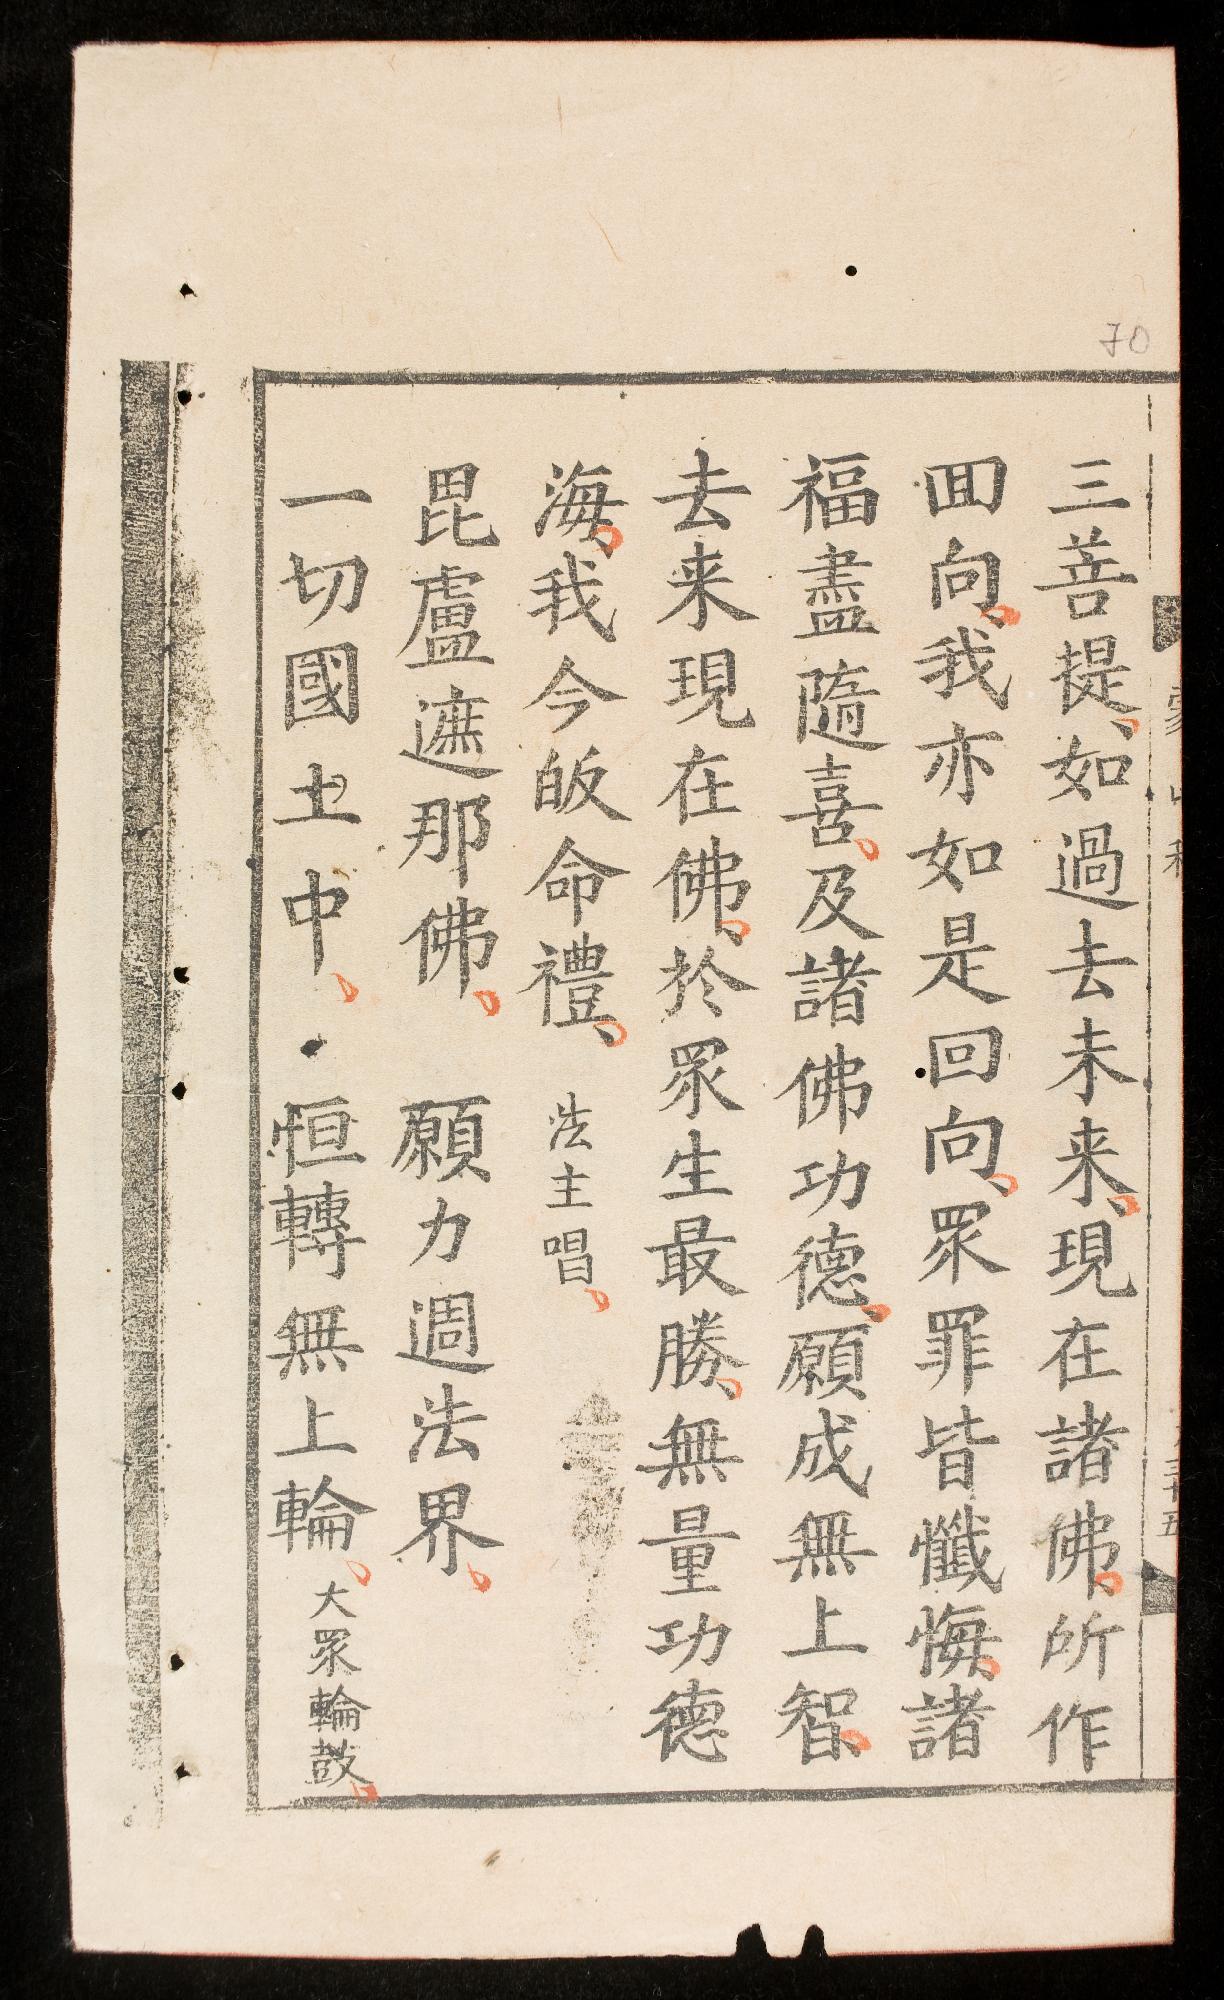 70
三菩提、如過去未来、現在諸佛、所作
囬向、我亦如是回向、眾罪皆懺悔、諸
福盡隨喜、及諸佛功德、願成無上智、
去来現在佛、扵眾生最勝、無量功德
海、我今皈命禮、 法主唱、
毘盧遮那佛、 願力週法界、
一切國土中、 恒轉無上輪、 大眾輪鼓、